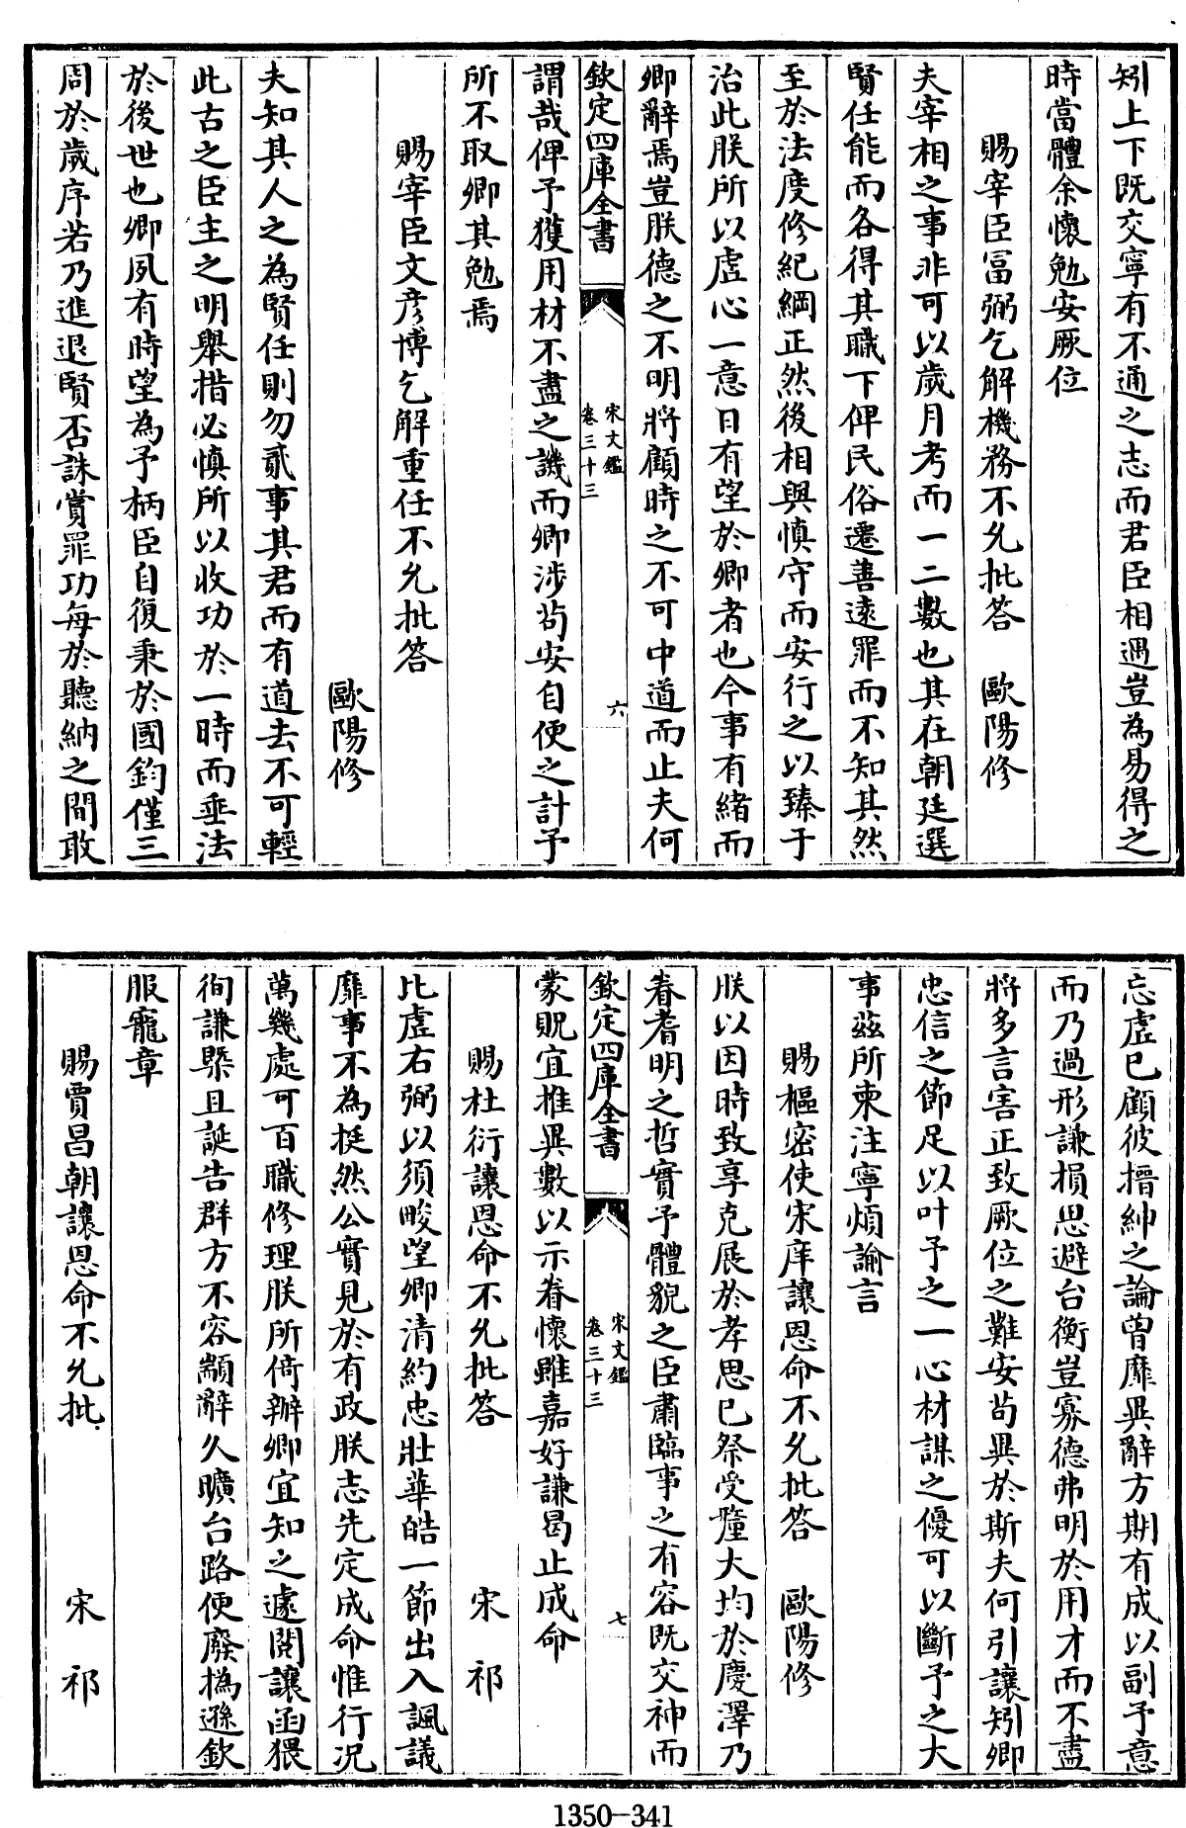 矧上下既交寧有不通之志而君臣相遇豈為易得之
時當體余懷勉安厥位
賜宰臣冨弼乞解機務不允批答　歐陽修
夫宰相之事非可以歲月考而一二數也其在朝廷選
賢任能而各得其職下俾民俗遷善遠罪而不知其然
至於法度修紀綱正然後相與慎守而安行之以臻于
治此朕所以虚心一意日有望於卿者也今事有緒而
卿辭焉豈朕德之不明將顧時之不可中道而止夫何
欽定四庫全書
宋文鑑
卷三十三
六
謂哉俾予獲用材不盡之譏而卿涉茍安自便之計予
所不取卿其勉焉
賜宰臣文彦博乞解重任不允批答
歐陽修
夫知其人之為賢任則勿貳事其君而有道去不可輕
此古之臣主之明舉措必慎所以收功於一時而垂法
於後世也卿夙有時望為予柄臣自復秉於國鈞僅三
周於歲序若乃進退賢否誅賞罪功每於聽納之間敢
忘虚已顧彼搢紳之論曾靡異辭方期有成以副予意
而乃過形謙損思避台衡豈寡德弗明於用才而不盡
將多言害正致厥位之難安茍異於斯夫何引讓矧卿
忠信之節足以叶予之一心材謀之優可以斷予之大
事兹所柬注寧煩諭言
賜樞密使宋庠讓恩命不允批答　歐陽修
朕以因時致享克展於孝思已祭受釐大均於慶澤乃
眷耆明之哲實予體貌之臣肅臨事之有容既交神而
欽定四庫全書
宋文鑑
卷三十三
七
蒙貺宜推異數以示眷懷雖嘉好謙曷止成命
賜杜衍讓恩命不允批答　宋祁
比虚右弼以須畯望卿清約忠壯華皓一節出入諷議
靡事不為挺然公實見於有政朕志先定成命惟行况
萬幾處可百職修理朕所倚辦卿宜知之遽閱讓函猥
徇謙槩且誕告群方不容顓辭久曠台路便廢撝遜欽
服寵章
賜賈昌朝讓恩命不允批　宋祁
1350—341